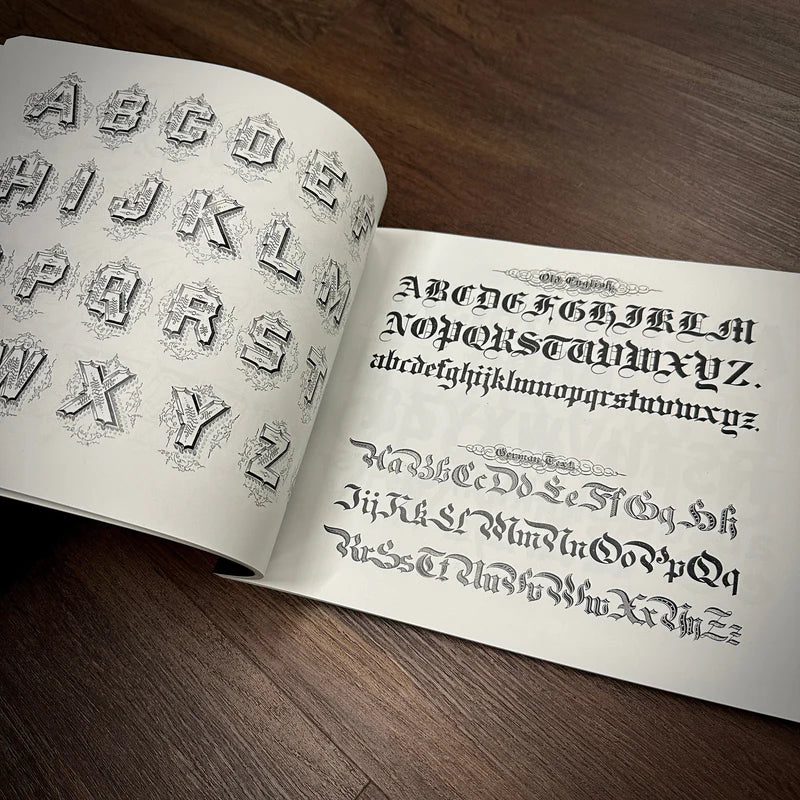 A B C D E F
H I J K L M
P Q R S T
W X Y Z
Old English.
ABCDEFGHIJKLM
NOPQRSTUVWXYZ.
abcdefghijklmnopqrstuvwxyz.
German Text.
Aa Bb Cc Dd Ee Ff Gg Hh
Iij Kk Ll Mm Nn Oo Pp Qq
Rr Ss Tt Uu Vv Ww Xx Yy Zz